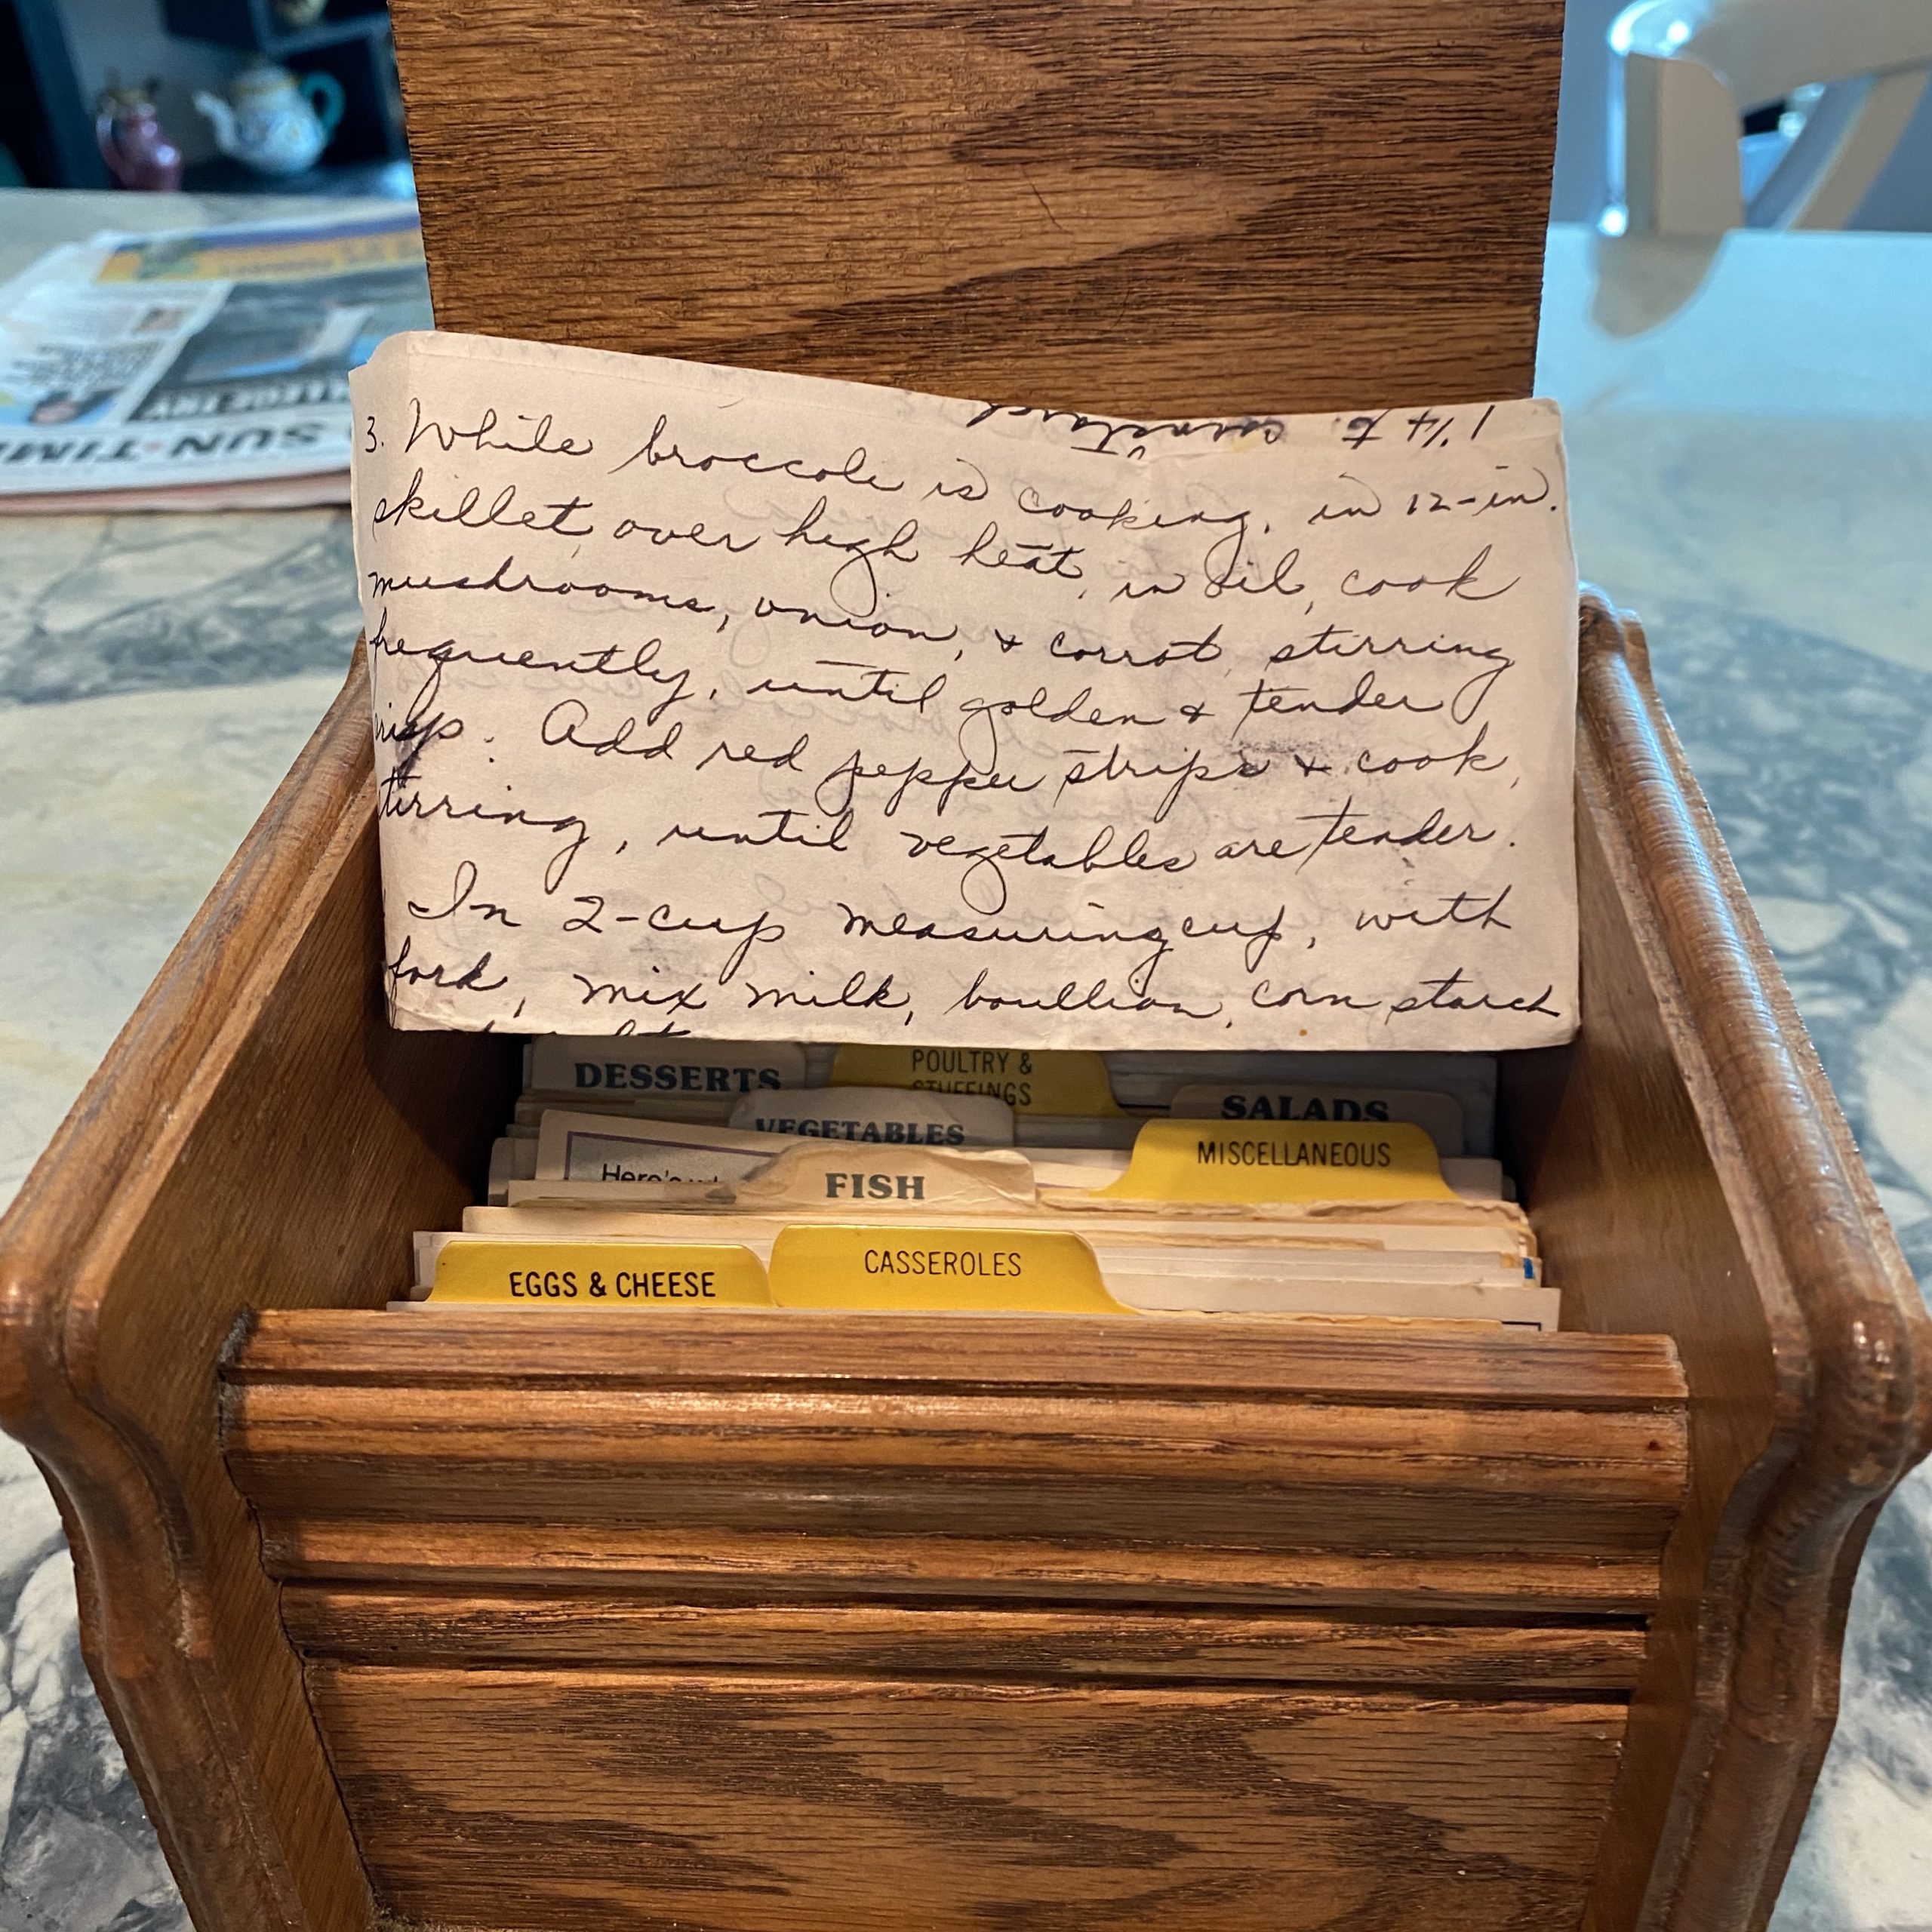 1 1/4 t. cornstarch
3. While broccoli is cooking, in 12-in.
skillet over high heat, in oil, cook
mushrooms, onion, & carrot, stirring
frequently, until golden & tender
crisp. Add red pepper strips & cook,
stirring, until vegetables are tender.
In 2-cup measuring cup, with
fork, mix milk, boullion, corn starch
DESSERTS
POULTRY &
STUFFINGS
SALADS
VEGETABLES
MISCELLANEOUS
Here's
FISH
CASSEROLES
EGGS & CHEESE
SUN-TIM